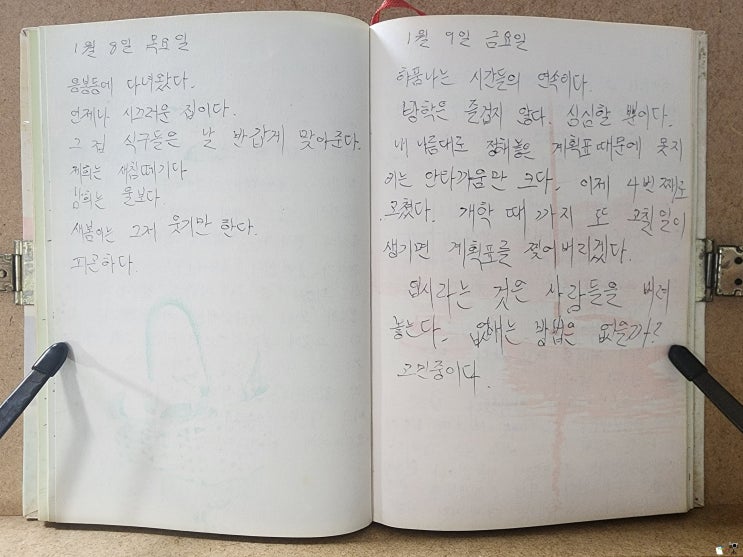 1월 8일 목요일
응봉동에 다녀왔다.
언제나 시끄러운 집이다.
그 집 식구들은 날 반갑게 맞아준다.
제희는 새침떼기다
남희는 울보다.
새봄이는 그저 웃기만 한다.
피곤하다.
1월 9일 금요일
하품나는 시간들의 연속이다.
방학은 즐겁지 않다. 심심할 뿐이다.
내 나름대로 정해놓은 계획표 때문에 못지
키는 안타까움만 크다. 이제 4번째로
고쳤다. 개학 때 까지 또 고칠일이
생기면 계획표를 찢어버리겠다.
입시라는 것은 사람들을 버려
놓는다. 없애는 방법은 없을까?
고민중이다.